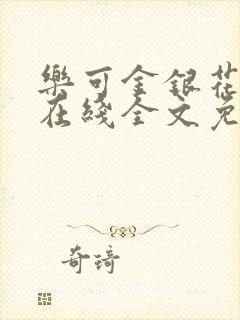 樂可金銀花
在綫全文免
奇琦